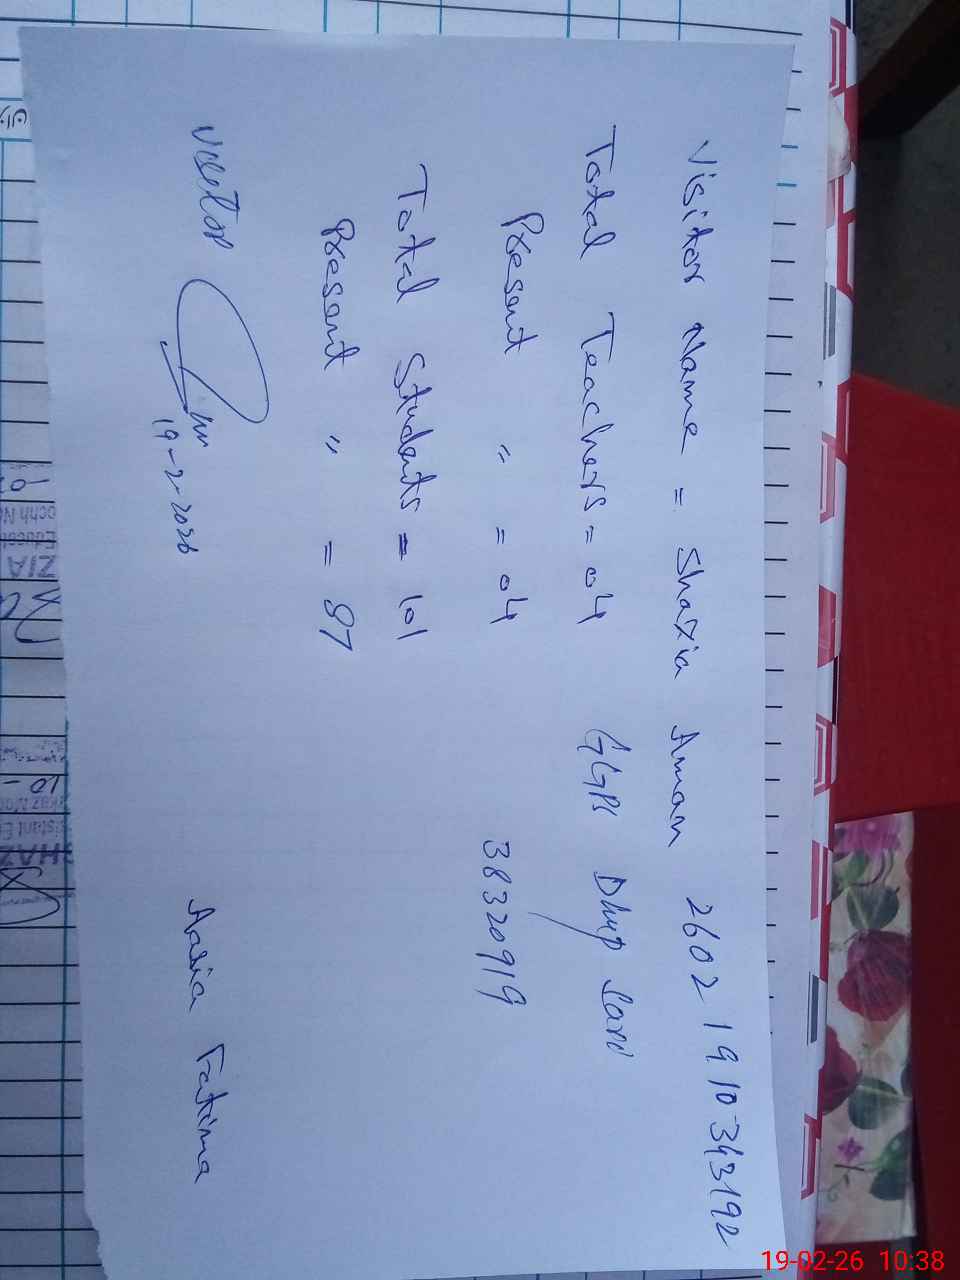 Visitor Name = Shazia Aman 2602 19 10 343192
Total Teachers = 04 GGPS Dhup Sari
Present " = 04
38320919
Total Students = 101
Present " = 87
Visitor
19-2-2026
Aasia Fatima
19-02-26 10:38